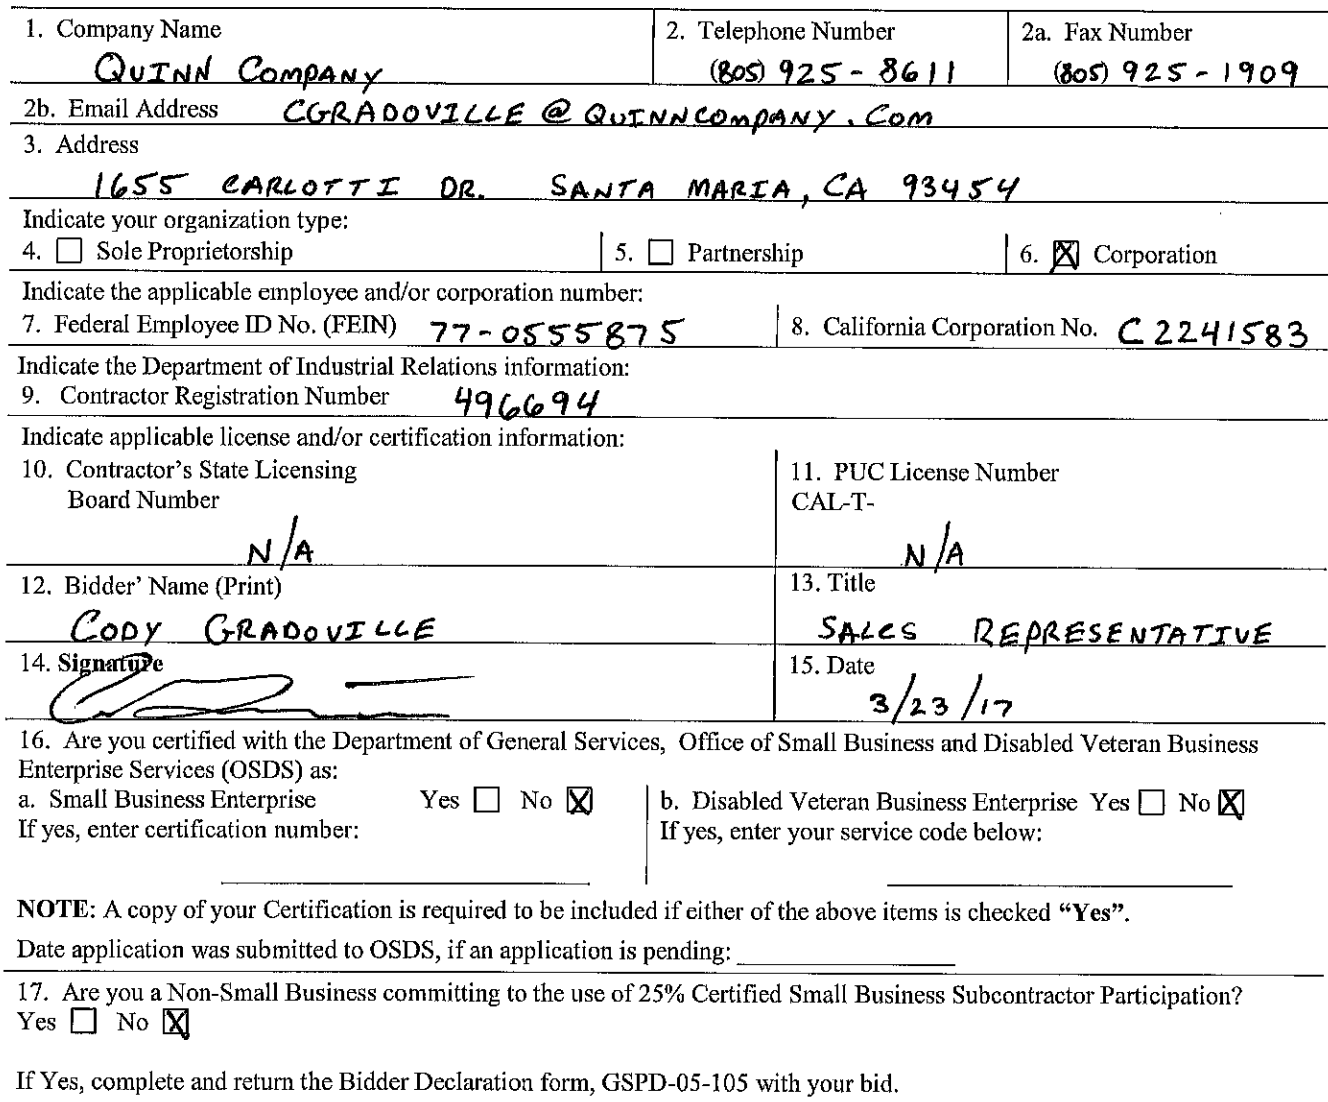 1. Company Name
QUINN COMPANY
2. Telephone Number
(805) 925-8611
2a. Fax Number
(805) 925-1909
2b. Email Address CGRADOVILLE@QUINNCOMPANY.COM
3. Address
1655 CARLOTTI DR. SANTA MARIA, CA 93454
Indicate your organization type:
4. ☐ Sole Proprietorship
5. ☐ Partnership
6. ☒ Corporation
Indicate the applicable employee and/or corporation number:
7. Federal Employee ID No. (FEIN) 77-0555875
8. California Corporation No. C2241583
Indicate the Department of Industrial Relations information:
9. Contractor Registration Number 496694
Indicate applicable license and/or certification information:
10. Contractor's State Licensing
Board Number
N/A
11. PUC License Number
CAL-T-
N/A
12. Bidder' Name (Print)
CODY GRADOVILLE
13. Title
SALES REPRESENTATIVE
14. Signature
15. Date
3/23/17
16. Are you certified with the Department of General Services, Office of Small Business and Disabled Veteran Business
Enterprise Services (OSDS) as:
a. Small Business Enterprise Yes ☐ No ☒
If yes, enter certification number:
b. Disabled Veteran Business Enterprise Yes ☐ No ☒
If yes, enter your service code below:
NOTE: A copy of your Certification is required to be included if either of the above items is checked “Yes”.
Date application was submitted to OSDS, if an application is pending:
17. Are you a Non-Small Business committing to the use of 25% Certified Small Business Subcontractor Participation?
Yes ☐ No ☒
If Yes, complete and return the Bidder Declaration form, GSPD-05-105 with your bid.